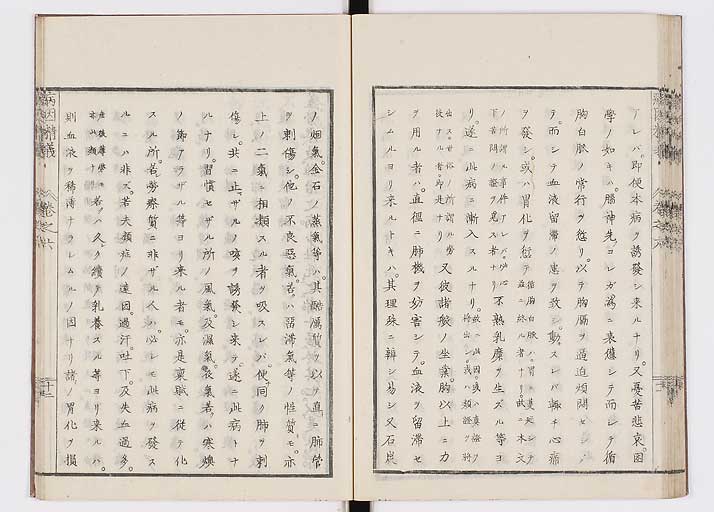 アレバ。即便本病ヲ誘發シ来ルナリ。又憂苦悲哀。困
學ノ如キハ。腦神先ツコレガ為ニ衰憊シテ而シテ循
胸白脈ノ常行ヲ愆リ。以テ胸膈ヲ逼迫煩悶セシメ。
而シテ血液留滞ノ患ヲ致シ。動スレバ輙チ心痛
ヲ發シ。或ハ胃化ヲ愆テ
不熟乳糜ヲ生ズル等ヨ
リ。遂ニ此病ニ漸入スルナリ。
又彼諸般ノ坐業。胸以上ニ力
ヲ用ル者ハ。直個ニ肺機ヲ妨害シテ。血液ヲ留滞セ
シムルヨリ来ルトキハ。其理殊ニ辨シ易シ又石炭
ノ烟氣。金石ノ蒸氣等ハ。其酷厲質ヲ以テ直ニ肺管
ヲ刺傷シ。他ノ不良惡氣。若ハ沼滞氣等ノ性質モ。亦
上ノ二氣ニ相類スル者ヲ吸スレバ。便同ク肺ヲ刺
傷シ。共ニ止ザルノ咳ヲ誘發シ来テ。遂ニ此病トナ
ルナリ。習慣セザル所ノ風氣。及濕氣。夜氣。若ハ寒燠
ノ節アラザル等ヨリ来ル者モ。亦是稟賦ニ從テ化
スル所。若勞瘵質ニ非ザル人ハ。必シモ此病ヲ發ス
ルニハ非ズ。若夫類症ノ遠因。過汗吐下。及失血過多。
若ハ久ク續テ乳養スル等ヨリ来ルハ。
則血液ヲ稀薄ナラシムルノ因ナリ諸ノ胃化ヲ損
病因精義
卷之六
十二